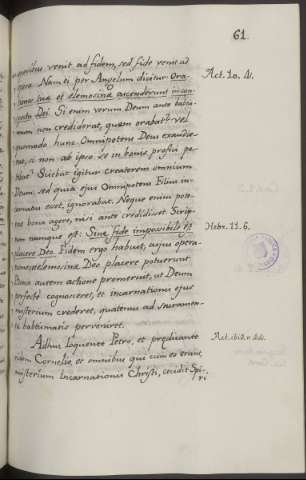 61.
operibus venit ad fidem, sed fide venit ad
opera. Nam ei per Angelum dicitur Ora-
tiones tuæ et elemosinæ ascenderunt in con-
spectu Dei. Si enim verum Deum ante baptis-
mum non crediderat, quem orabat? vel
quomodo hunc Omnipotens Deus exaudie-
rat, si non ab ipso se in bonis profici pe-
tebat? Sciebat igitur creatorem omnium
Deum, sed quia ejus Omnipotens Filius in-
carnatus esset, ignorabat. Neque enim pote-
rat bona agere, nisi ante credidisset. Scrip-
tum namque est: Sine fide impossibile est
placere Deo. Fidem ergo habuit, cujus opera-
tiones elemosinæ Deo placere potuerunt.
Bona autem actione promeruit, ut Deum
perfecte cognosceret, et incarnationis ejus
mysterium crederet, quatenus ad sacramen-
ta baptismatis perveniret.
Adhuc loquente Petro, et prædicante
eidem Cornelio, et omnibus qui cum eo erant,
mysterium Incarnationis Christi, cecidit Spi-
ri
Act. 10. 4.
Hebr. 11. 6.
Act. ibid. v. 44.